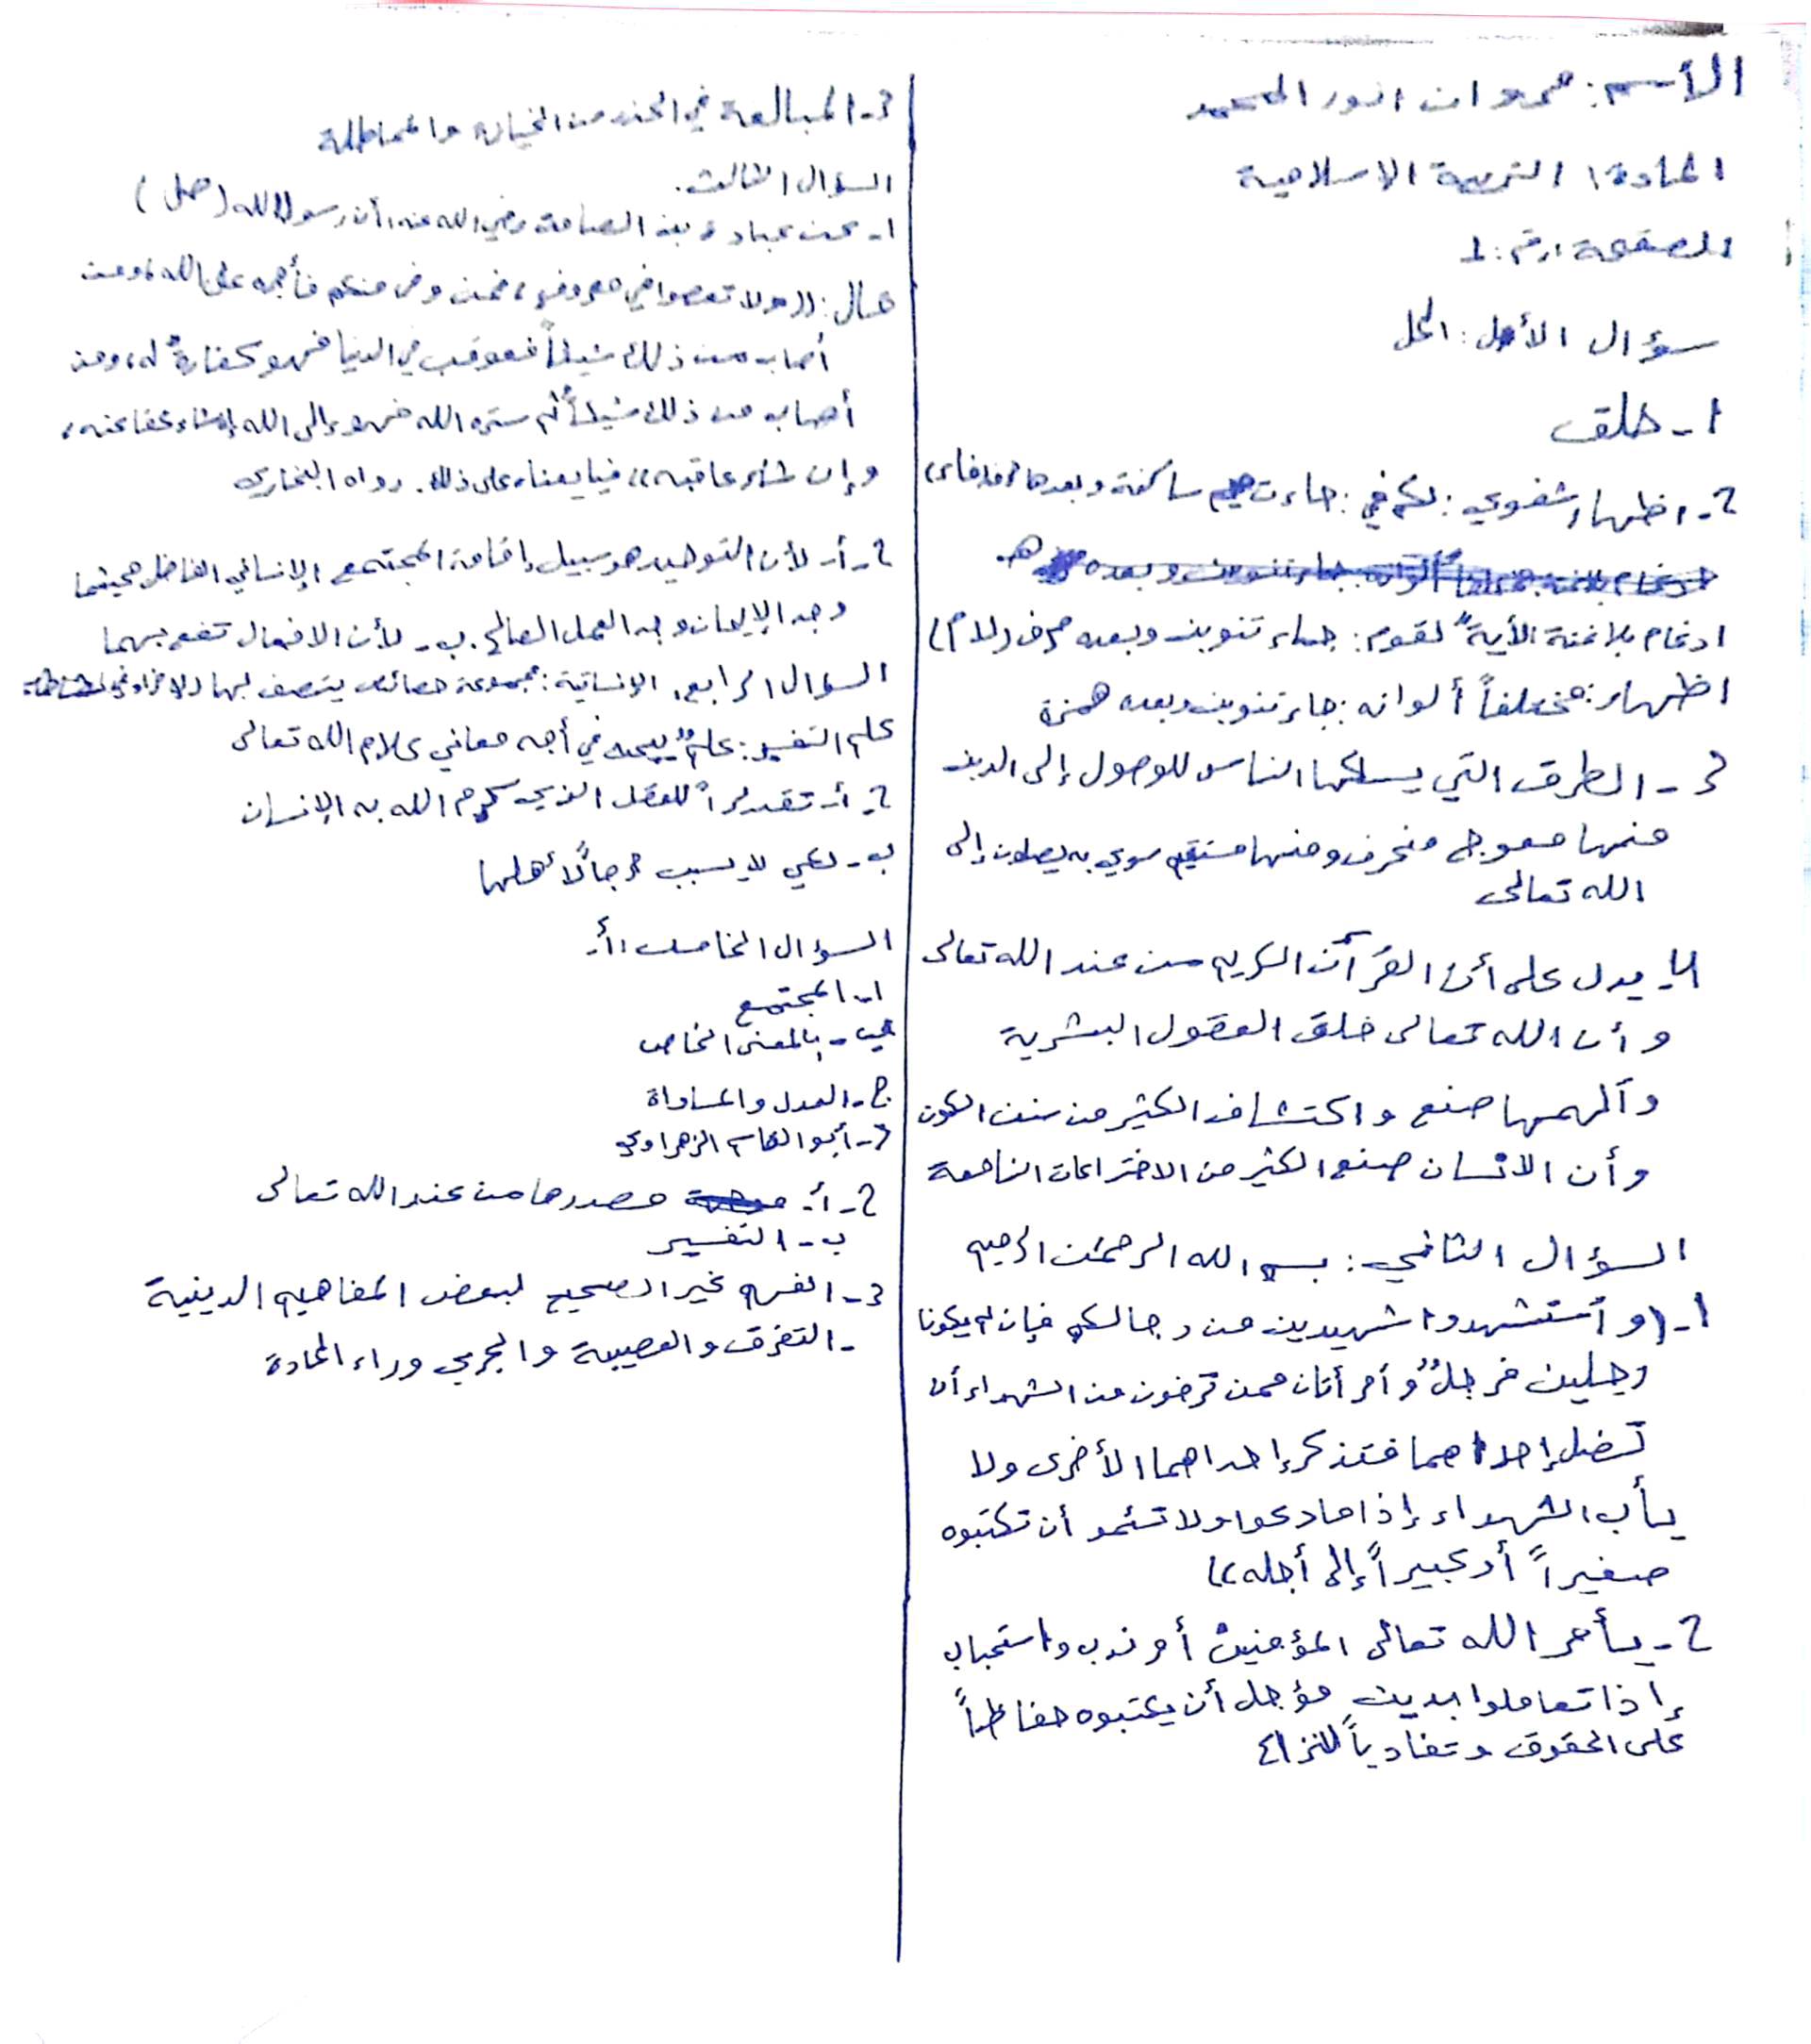 الأسم: مروان انور المحمد
المادة: التربية الاسلامية
الصفحة رقم: 1
سؤال الأول: الحل
1- خلق
2- اظهار شفوي: لكم في: جاءت ميم ساكنة وبعدها حرف فاء
ادغام بلا غنة: لأيةً لقوم: جاء تنوين وبعده حرف (اللام)
اظهار: مختلفاً ألوانه: جاء تنوين وبعده همزة
3- الطرق التي يسلكها الناس للوصول إلى الدين
منها معوج منحرف ومنها مستقيم سوي به يصلون إلى
الله تعالى
4- يدل على أن القرآن الكريم من عند الله تعالى
و أن الله تعالى خلق العقول البشرية
وألهمها صنع واكتشاف الكثير من سنن الكون
و أن الانسان صنع الكثير من الاختراعات النافعة
السؤال الثاني: بسم الله الرحمن الرحيم
1- (و أستشهدوا شهيدين من رجالكم فإن لم يكونا
رجلين فرجلٌ و أمرأتان ممن ترضون من الشهداء أن
تضل إحداهما فتذكر إحداهما الأخرى ولا
يأب الشهداء إذا مادعوا ولا تسئمو أن تكتبوه
صغيراً أو كبيراً إلى أجله))
2- يأمر الله تعالى المؤمنين أمر ندب واستحباب
إذا تعاملوا بدين مؤجل أن يكتبوه حفاظاً
على الحقوق وتفادياً للنزاع
3- المبالغة في الحذر من الخيانة والمماطلة
السؤال الثالث.
1- عن عبادة بن الصامت رضي الله عنه أن رسول الله (صل)
قال: ((ولا تعصوا في معروف، فمن وفى منكم فأجره على الله، ومن
أصاب من ذلك شيئاً فعوقب في الدنيا فهو كفارةٌ له، ومن
أصاب من ذلك شيئاً ثم ستره الله فهو إلى الله إن شاء عفا عنه،
وإن شاء عاقبه)) فبايعناه على ذلك. رواه البخاري
2- أ- لأن التوحيد هو سبيل إقامة المجتمع الإنساني الفاضل فحيثما
وجد الإيمان وجد العمل الصالح. ب- لأن الافعال تقع بهما
السؤال الرابع. الإنسانية: مجموعة خصائص يتصف بها الافراد في
علم التفسير: علمٌ يبحث في أجه معاني كلام الله تعالى
2- أ- تقديراً للعقل الذي كرم الله به الإنسان
ب- لكي لا يسبب حرجاً لأهلها
السؤال الخامس: أ-
1- المجتمع
ب- بالمعنى الخاص
ج- العدل والمساواة
د- أبو القاسم الزهراوي
2- أ- مصدرها من عند الله تعالى
ب- التفسير
3- الفهم غير الصحيح لبعض المفاهيم الدينية
- التفرق والعصبية والجري وراء المادة